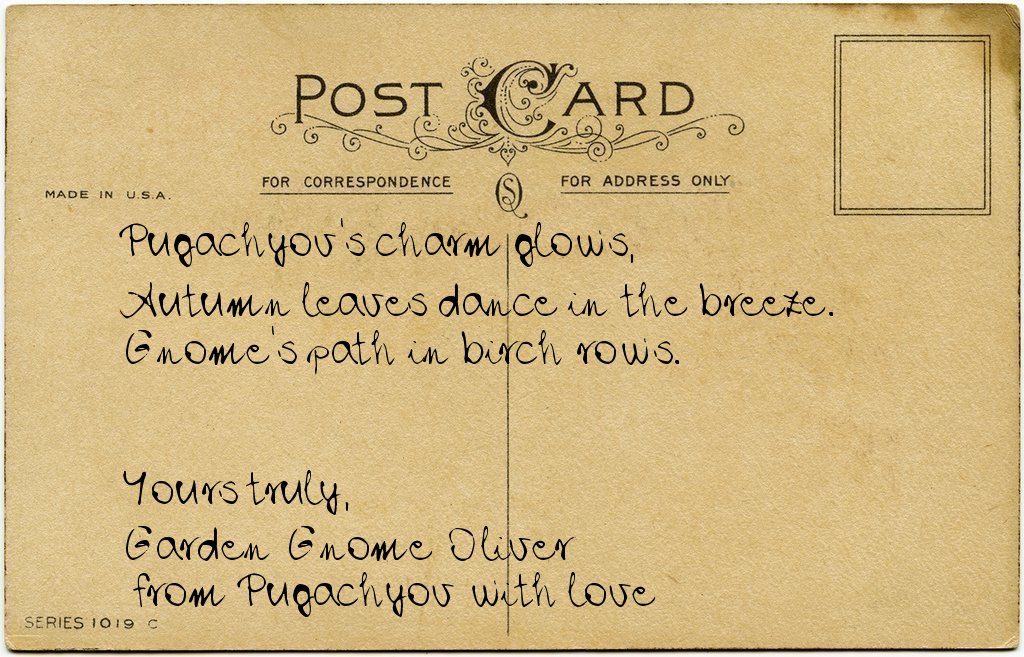 POST CARD
FOR CORRESPONDENCE
FOR ADDRESS ONLY
MADE IN U.S.A.
Pugachyov's charm glows,
Autumn leaves dance in the breeze.
Gnome's path in birch rows.
Yours truly,
Garden Gnome Oliver
from Pugachyov with love
SERIES 1019 C